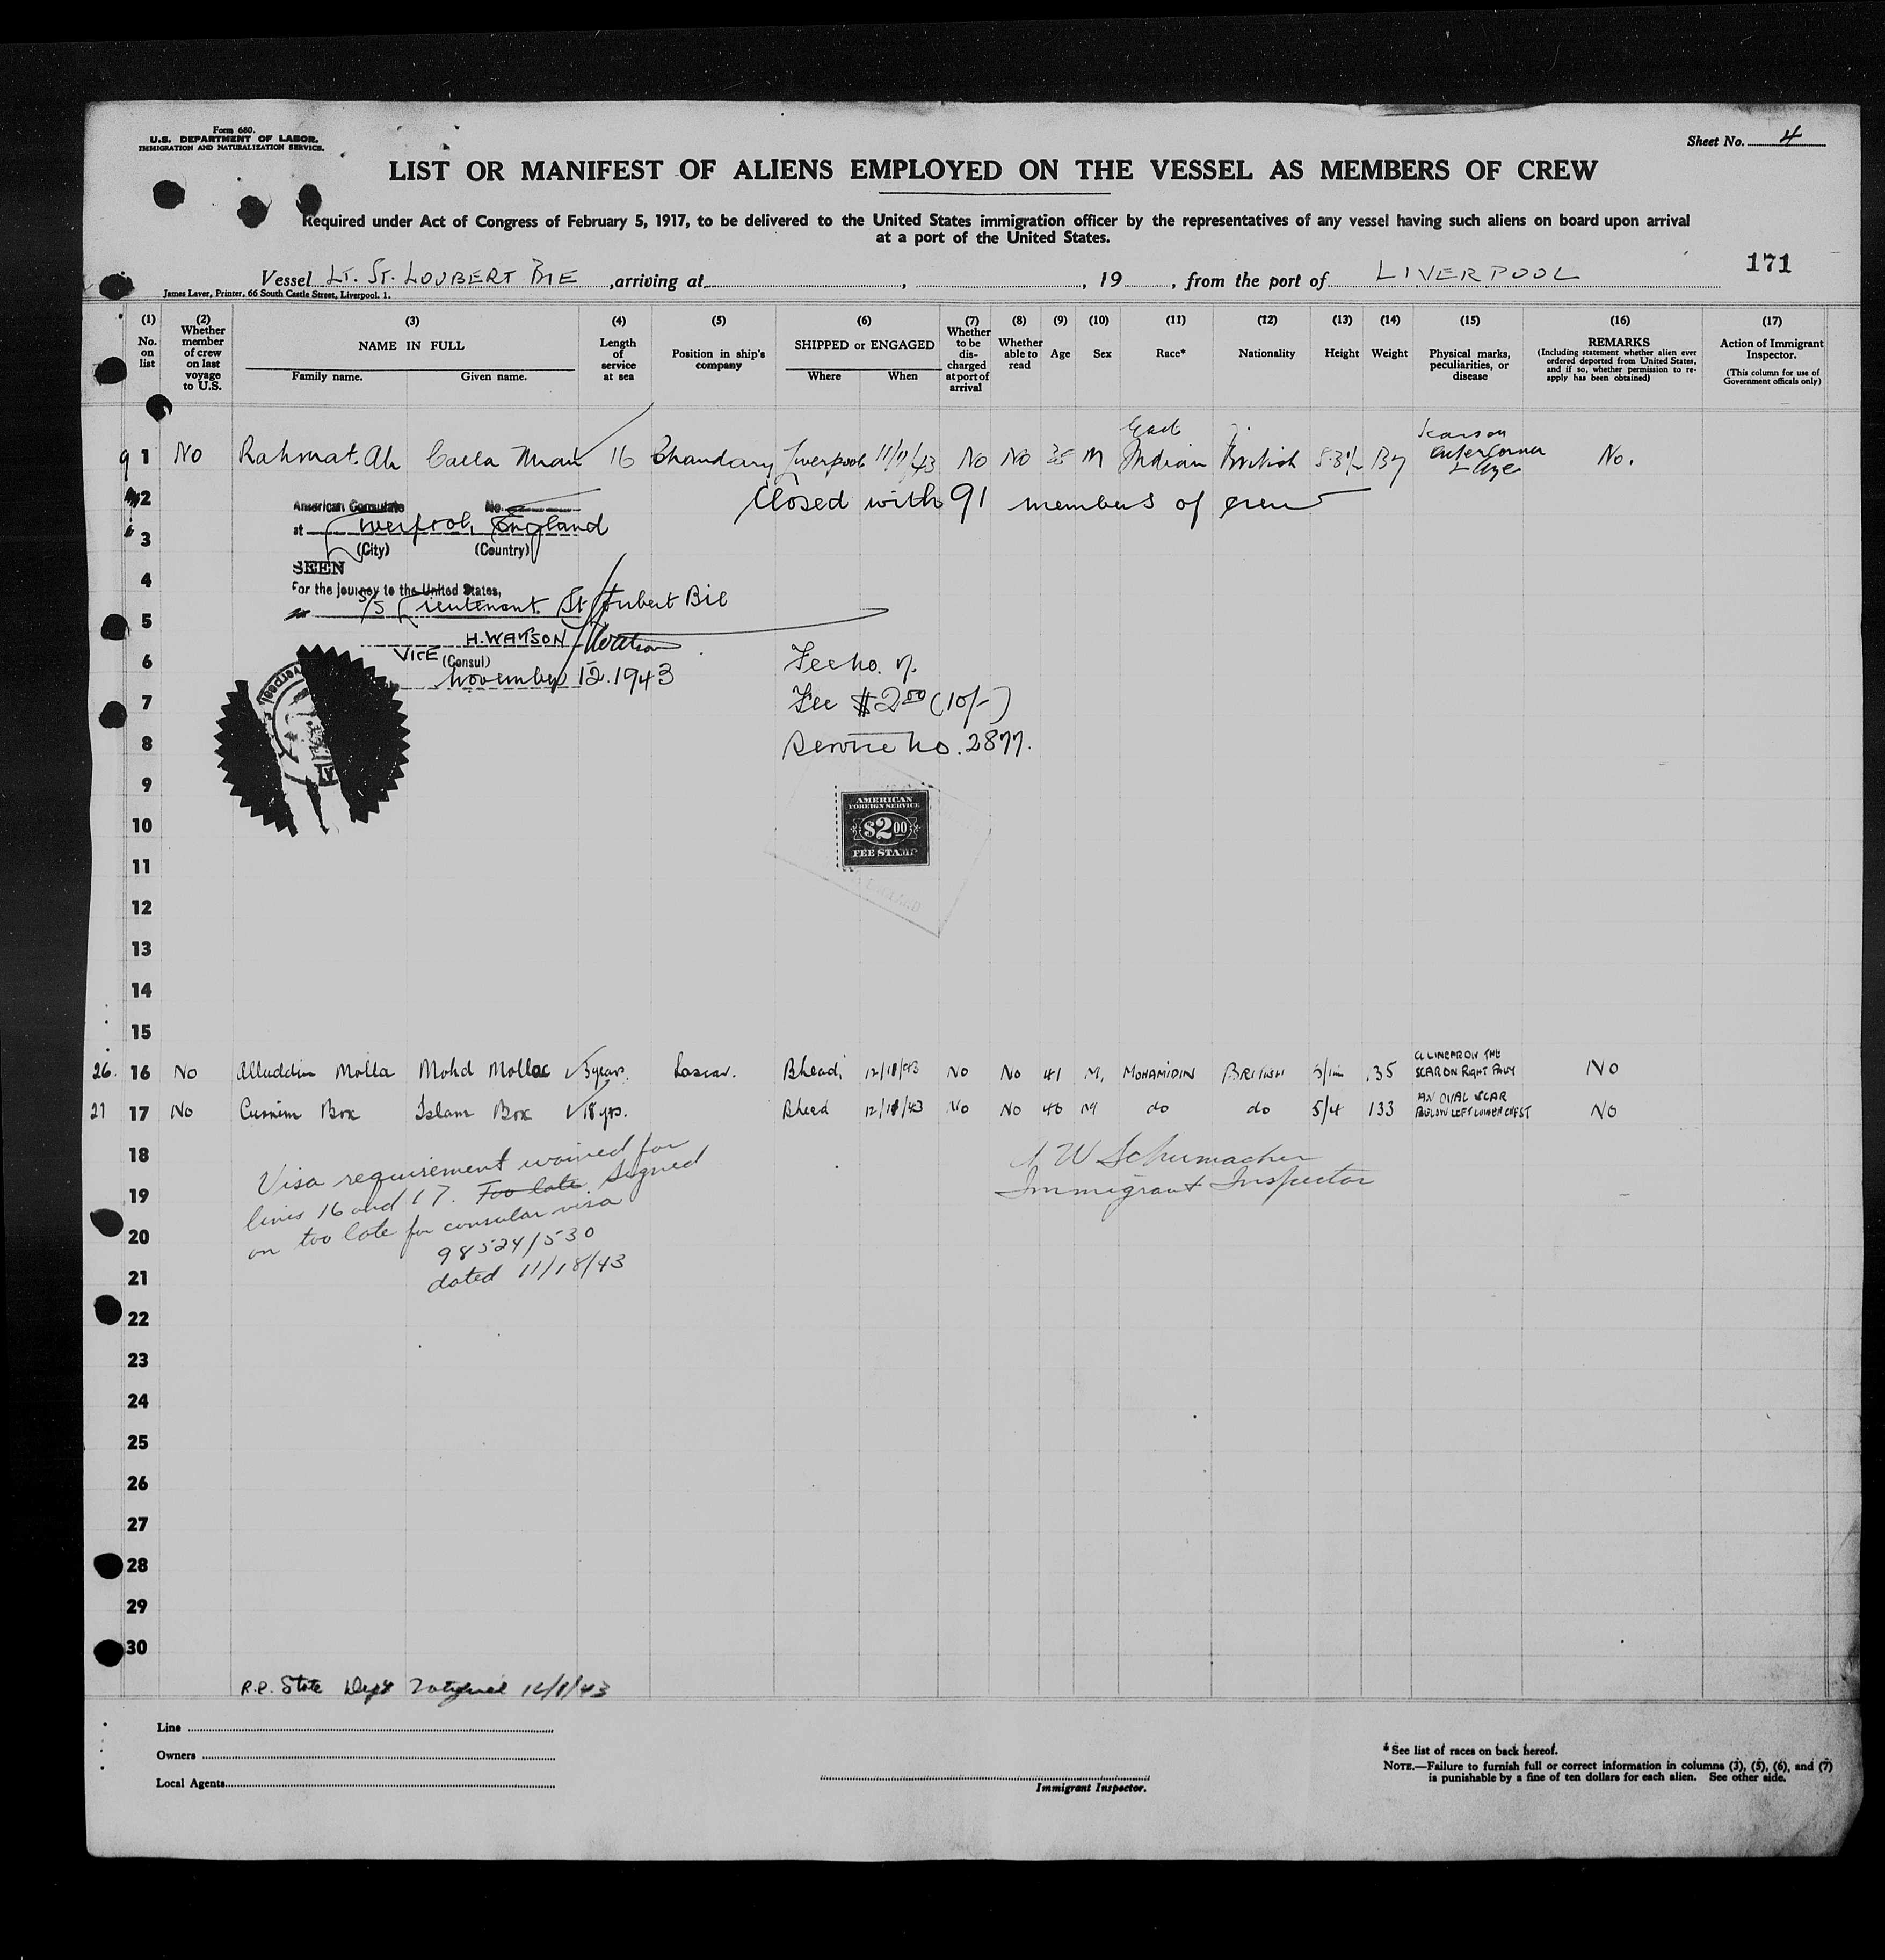 Form 680.
U.S. DEPARTMENT OF LABOR.
IMMIGRATION AND NATURALIZATION SERVICE.
Sheet No. 4
LIST OR MANIFEST OF ALIENS EMPLOYED ON THE VESSEL AS MEMBERS OF CREW
Required under Act of Congress of February 5, 1917, to be delivered to the United States immigration officer by the representatives of any vessel having such aliens on board upon arrival
at a port of the United States.
171
Vessel LT. ST. LOUBERT BIE, arriving at , , 19 , from the port of LIVERPOOL
James Laver, Printer, 66 South Castle Street, Liverpool. 1.
(1) No. on list
(2) Whether member of crew on last voyage to U.S.
(3) NAME IN FULL Family name. Given name.
(4) Length of service at sea
(5) Position in ship's company
(6) SHIPPED or ENGAGED Where When
(7) Whether to be discharged at port of arrival
(8) Whether able to read
(9) Age
(10) Sex
(11) Race*
(12) Nationality
(13) Height
(14) Weight
(15) Physical marks, peculiarities, or disease
(16) REMARKS (Including statement whether alien ever ordered deported from United States, and if so, whether permission to re-apply has been obtained)
(17) Action of Immigrant Inspector. (This column for use of Government officials only)
9 1 No Rahmat Ali 16 Bhandary Liverpool 11/11/43 No No 35 M East Indian British Scar on outer corner L Eye No.
2 Closed with 91 members of crew
American Consulate No.
3 at Liverpool, England
(City) (Country)
4 SEEN
For the journey to the United States,
5 S/S Lieutenant St Loubert Bie
H. WATSON
6 VICE (Consul)
November 12. 1943
Fee no.
7 Fee $2.00 (10/-)
8 Service no. 2877.
9
10 AMERICAN FOREIGN SERVICE $2.00 FEE STAMP
11
12 ENGLAND
13
14
15
26. 16 No Alladdin Molla Mohd Mollac years. Lascar. Bhead, 12/11/43 No No 41 M, MOHAMIDIN BRITISH SCAR ON RIGHT No
27 17 No Box Islam Box 18 yrs. Bhead 12/11/43 No No 40 M do do 5/4 133 AN OVAL SCAR BELOW LEFT LOWER CHEST No
18 Visa requirement waived for
19 lines 16 and 17. Too late Signed
20 on too late for consular visa
98524/530
21 dated 11/18/43
W Schumacher
Immigrant Inspector
22
23
24
25
26
27
28
29
30
State Dept 12/1/43
Line
Owners
Local Agents
Immigrant Inspector.
* See list of races on back hereof.
NOTE.—Failure to furnish full or correct information in columns (3), (5), (6), and (7)
is punishable by a fine of ten dollars for each alien. See other side.